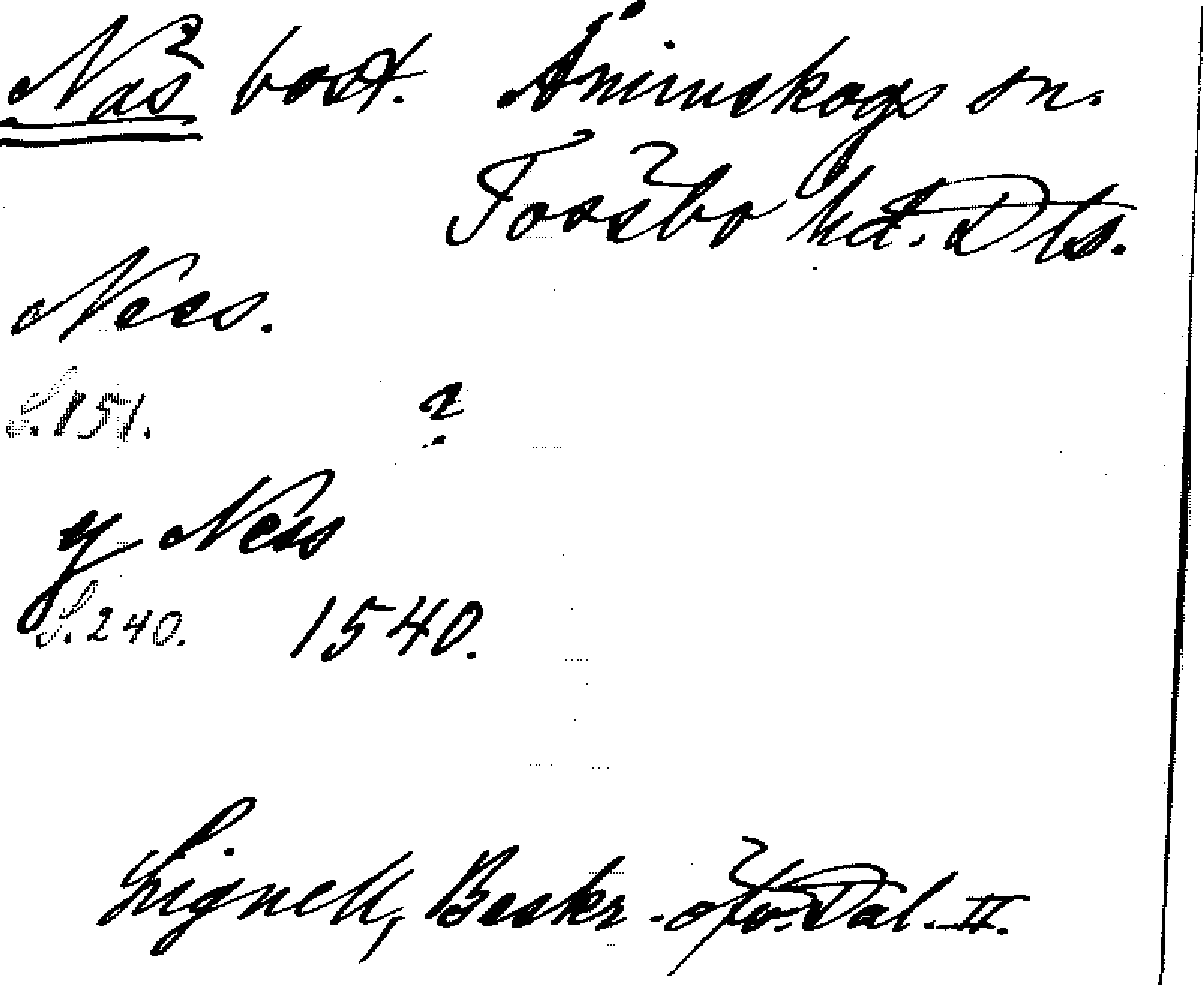 Näs bost. Ånimskogs sn.
Tössbo hd. Dls.
Nees.
S. 151. ?
y Ness
S. 240. 1540.
Lignell, Beskr. öfv. Dal. II.